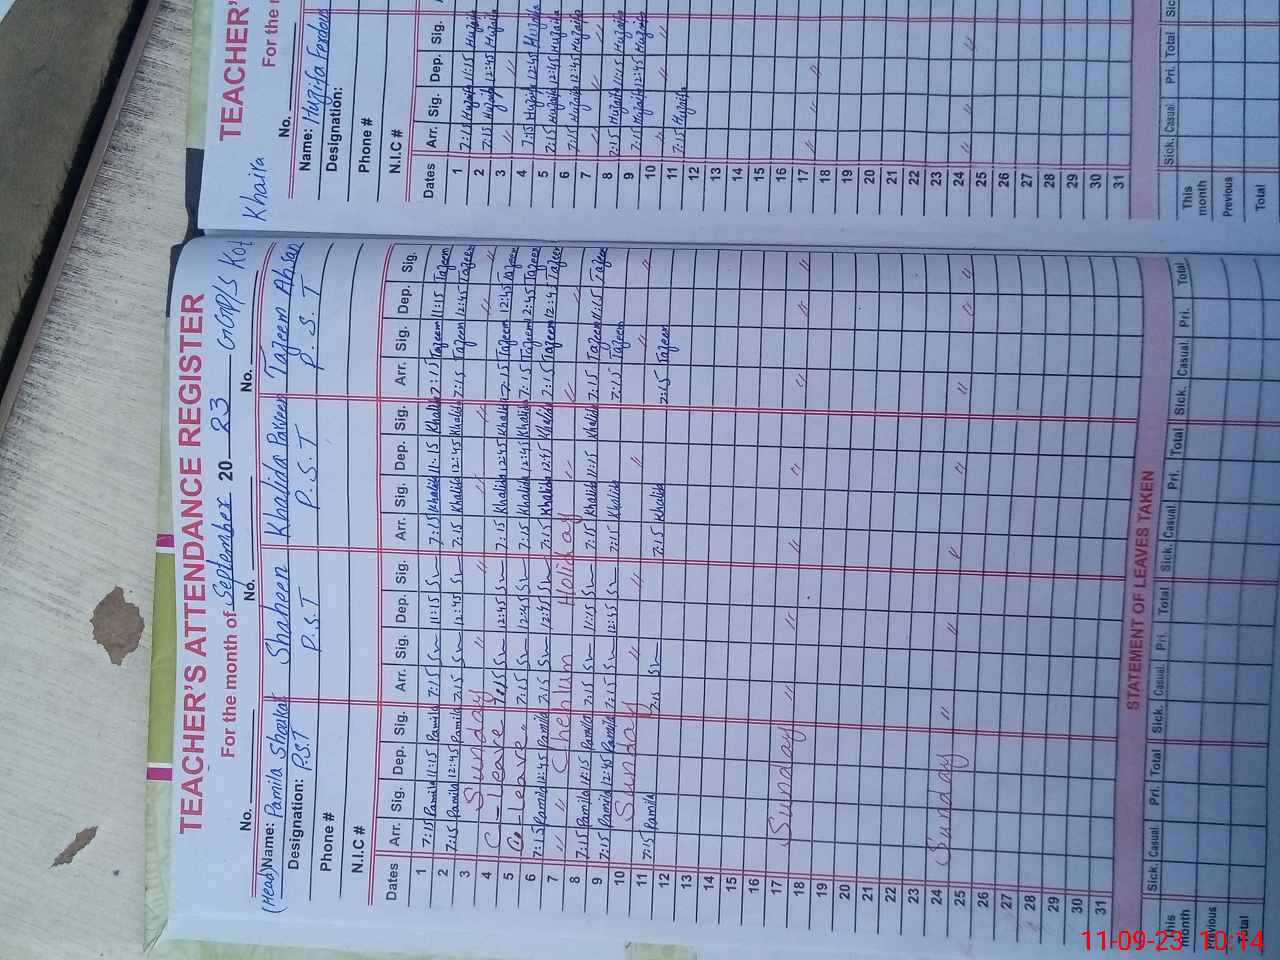 TEACHER'S ATTENDANCE REGISTER
For the month of September 20 23 GGP/S Kot
No. No. No.
(Head) Name: Pamila Shaukat Shaheen Khalida Parveen Tazeem Ahsan
Designation: P.S.T P.S.T P.S.T P.S.T
Phone #
N.I.C #
Dates Arr. Sig. Dep. Sig. Arr. Sig. Dep. Sig. Arr. Sig. Dep. Sig. Arr. Sig. Dep. Sig.
1 7:15 Pamila 11:15 Pamila 7:15 11:15 7:15 Khalida 11:15 Khalida 7:15 Tazeem 11:15 Tazeem
2 7:15 Pamila 12:45 Pamila 7:15 12:45 7:15 Khalida 12:45 Khalida 7:15 Tazeem 12:45 Tazeem
3 Sunday " " " " " "
4 C-leave 7:15 12:45 7:15 Khalida 12:45 Khalida 7:15 Tazeem 12:45 Tazeem
5 Co-leave " 7:15 12:45 7:15 Khalida 12:45 Khalida 7:15 Tazeem 12:45 Tazeem
6 7:15 Pamila 12:45 Pamila 7:15 12:45 7:15 Khalida 12:45 Khalida 7:15 Tazeem 12:45 Tazeem
7 " " Chehlum Holiday " " "
8 7:15 Pamila 11:15 Pamila 7:15 11:15 7:15 Khalida 11:15 Khalida 7:15 Tazeem 11:15 Tazeem
9 7:15 Pamila 12:45 Pamila 7:15 12:45 7:15 Khalida 7:15 Tazeem
10 Sunday " " " " "
11 7:15 Pamila 7:15 7:15 Khalida 7:15 Tazeem
12
13
14
15
16
17 Sunday " " " " " " "
18
19
20
21
22
23
24 Sunday " " " " " " "
25
26
27
28
29
30
31
STATEMENT OF LEAVES TAKEN
Sick. Casual. Pri. Total Sick. Casual. Pri. Total Sick. Casual. Pri. Total Sick. Casual. Pri. Total
This month
Previous
Total
Khaira
TEACHER'
For the m
No.
Name: Huzifa Ferdous
Designation:
Phone #
N.I.C #
Dates Arr. Sig. Dep. Sig.
1 7:15 Huzaifa 11:15 Huzaifa
2 7:15 Huzaifa 12:45 Huzaifa
3 " "
4 7:15 Huzaifa 12:45 Huzaifa
5 7:15 Huzaifa 12:45 Huzaifa
6 7:15 Huzaifa 12:45 Huzaifa
7 " " "
8 7:15 Huzaifa 11:15 Huzaifa
9 7:15 Huzaifa 12:45 Huzaifa
10 " " "
11 7:15 Huzaifa
12
13
14
15
16
17 " " "
18
19
20
21
22
23
24 " " "
25
26
27
28
29
30
31
Sick. Casual. Pri. Total Sic
This month
Previous
Total
11-09-23 10:14